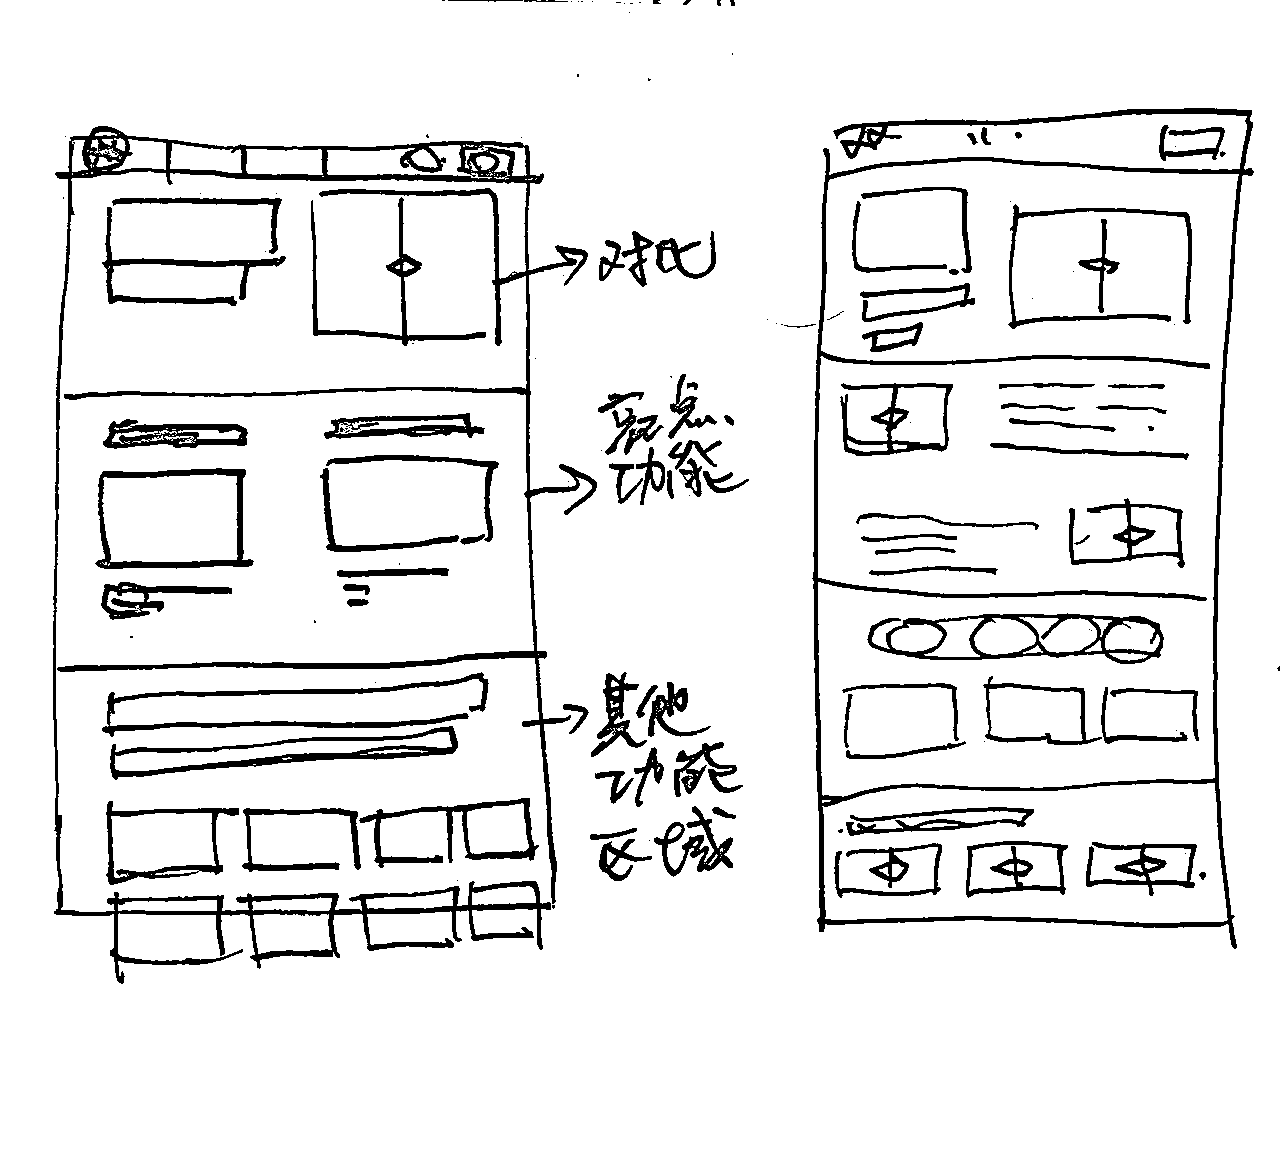 对比
亮点
功能
其他
功能
区域